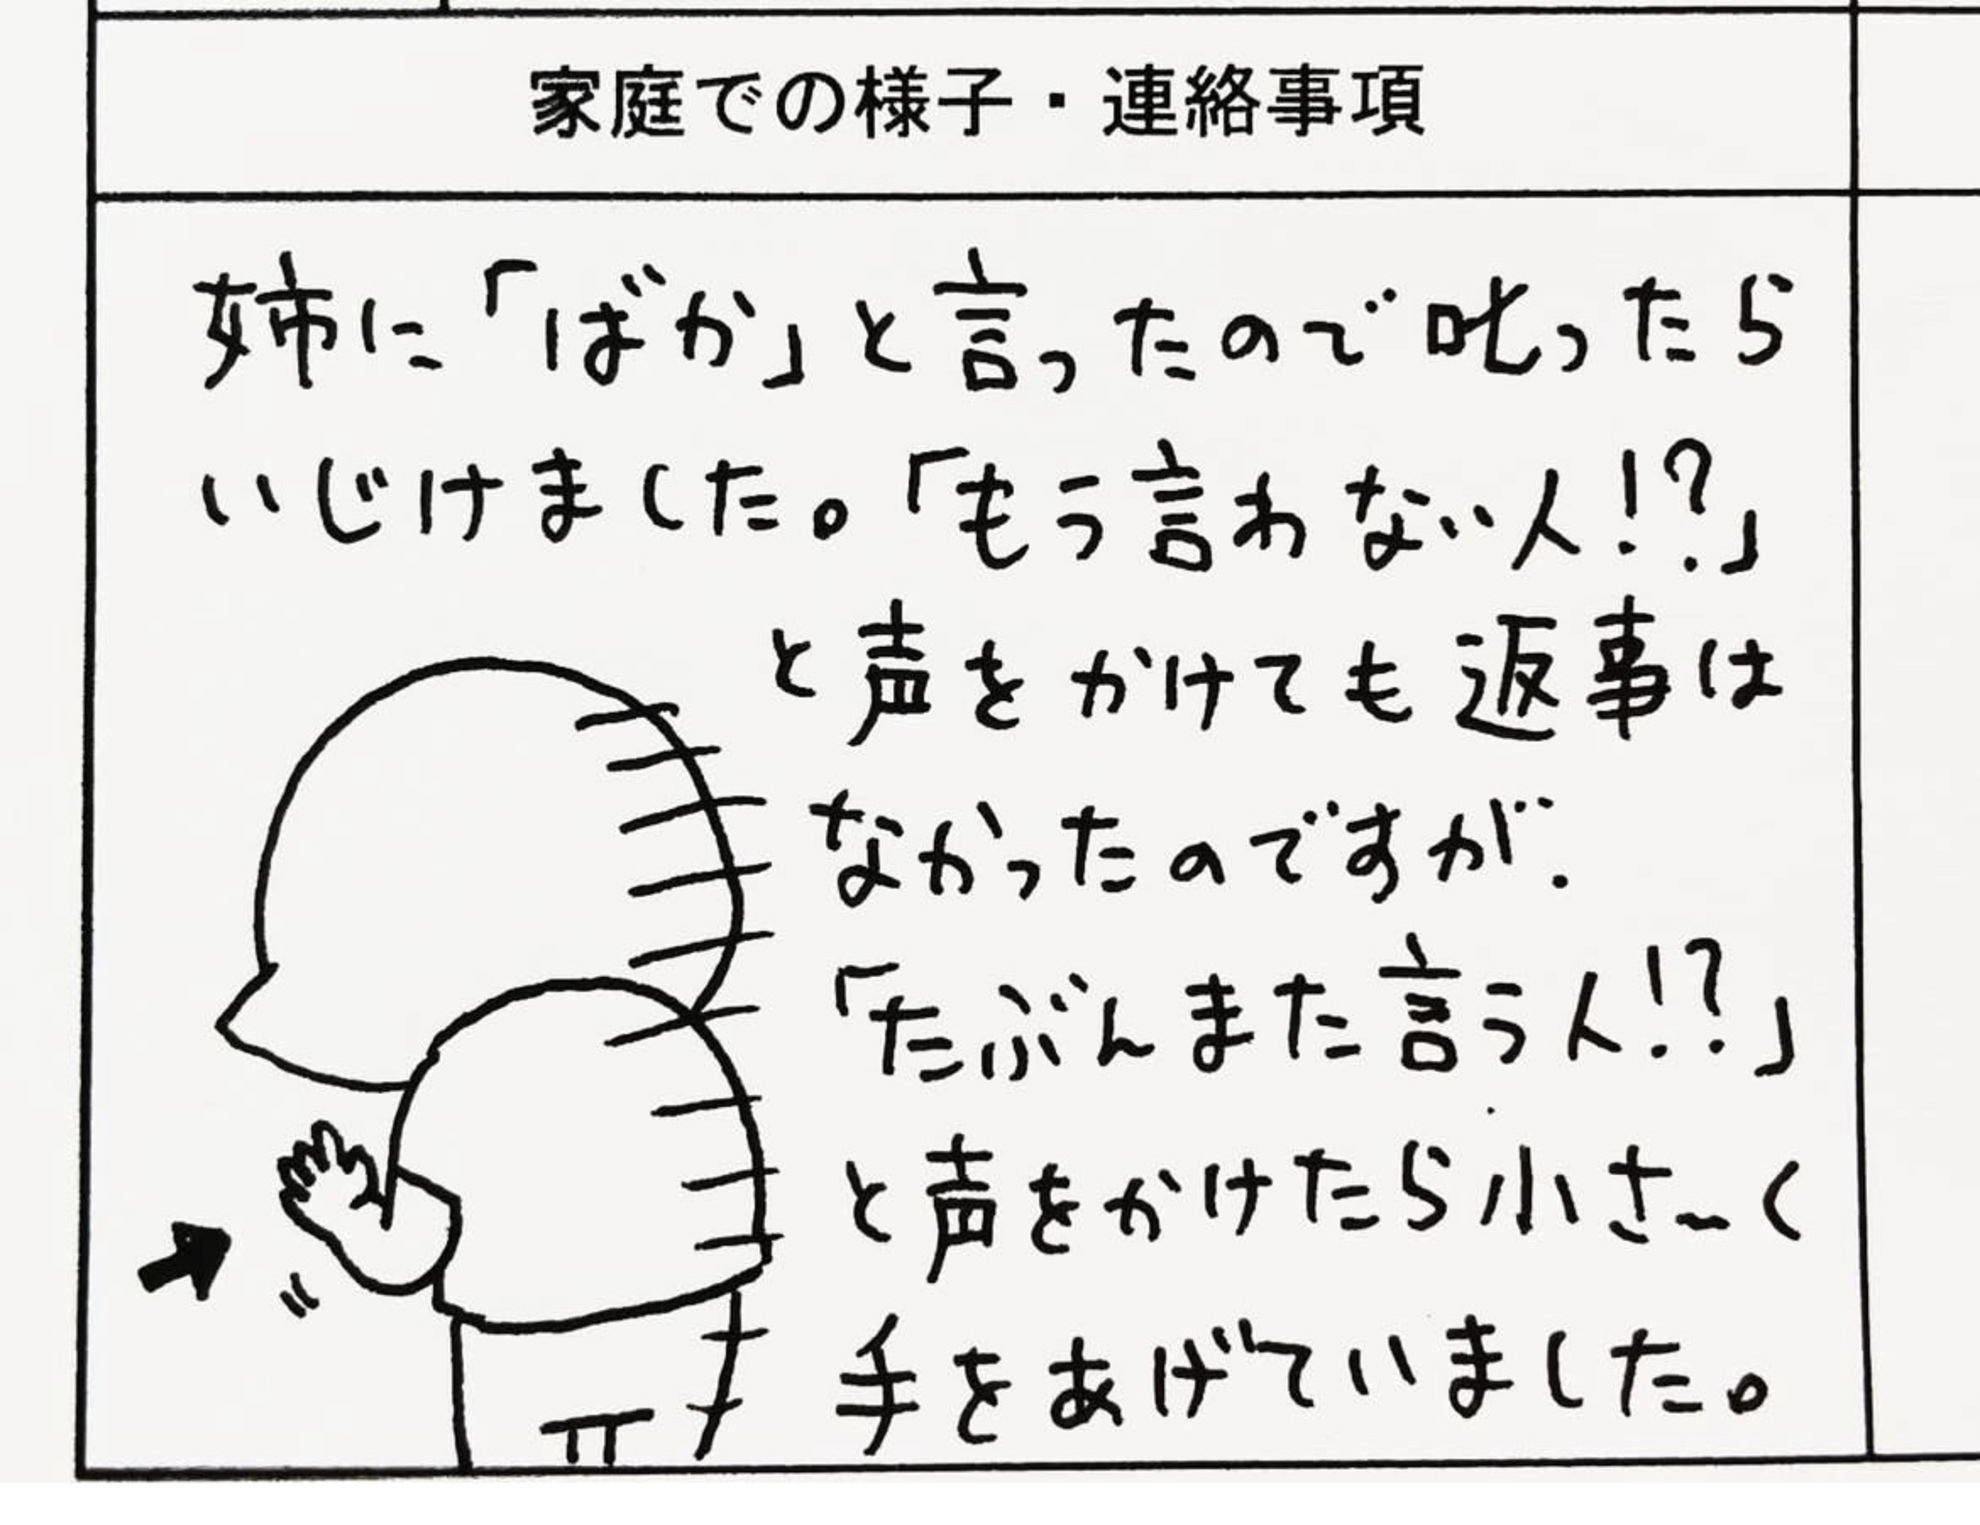 家庭での様子・連絡事項
姉に「ばか」と言ったので叱ったら
いじけました。「もう言わない人!?」
と声をかけても返事は
なかったのですが.
「たぶんまた言う人!?」
と声をかけたら小さ~く
手をあげていました。